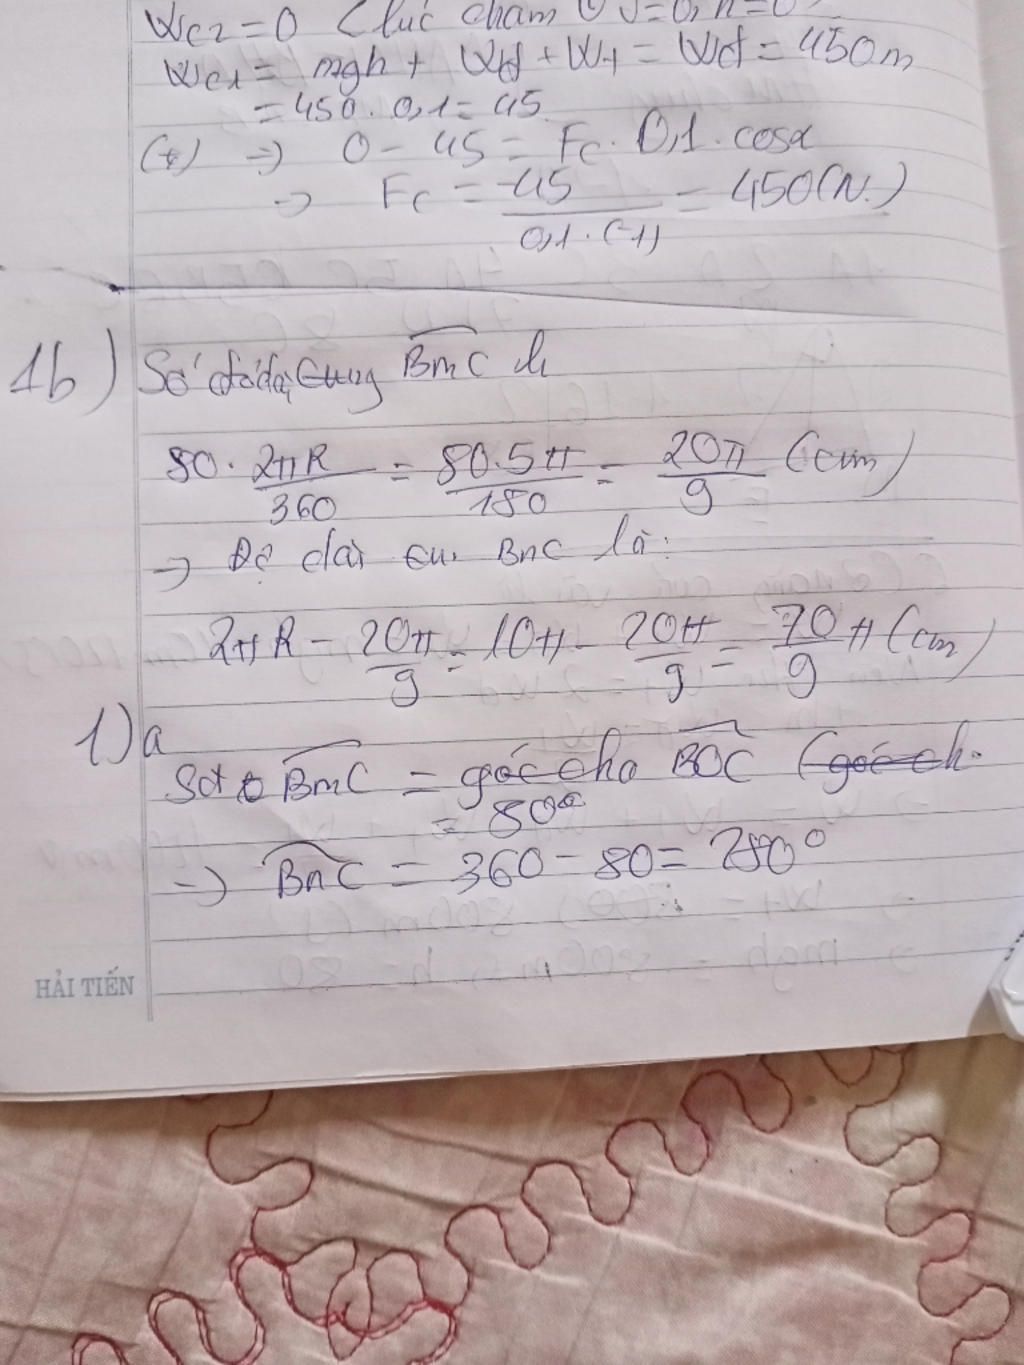 Wc2 = 0 (lúc chạm v=0, h=0
Wc1 = mgh + Wđ + Wt = Wđ = 450m
= 450 . 0,1 = 45
(*) => 0 - 45 = Fc . 0,1 . cosα
=> Fc = -45 / 0,1 . (-1) = 450 (N)
1b) Số cung BmC
80 . 2πR / 360 = 80.5π / 180 = 20π / 9 (cm)
=> Độ dài cu. BnC là:
2πR - 20π / 9 = 10π - 20π / 9 = 70 / 9 π (cm)
1) a
Sđ BmC = góc cho BOC (góc ch.
= 80°
=> BnC = 360 - 80 = 280°
HẢI TIẾN